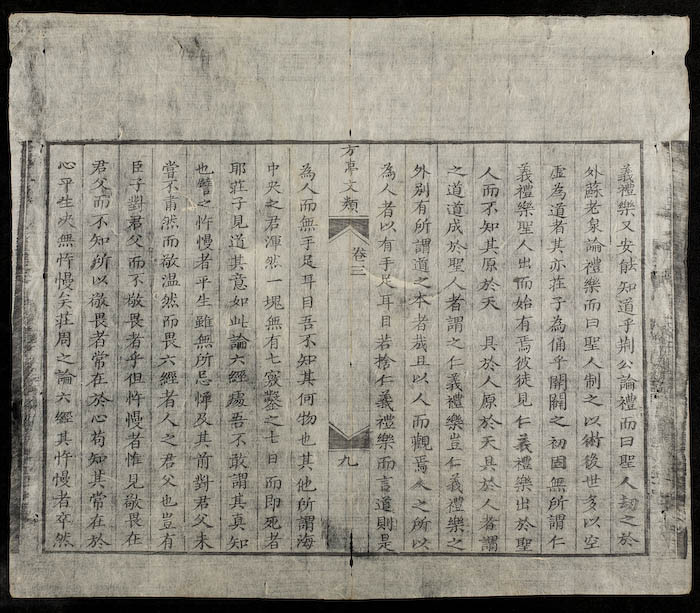 義禮樂又安能知道乎荆公論禮而曰聖人劫之於
外蘇老泉論禮樂而曰聖人制之以術後世多以空
虛為道者其亦莊子為俑乎開闢之初固無所謂仁
義禮樂聖人出而始有焉彼徒見仁義禮樂出於聖
人而不知其原於天 具於人原於天具於人者謂
之道道成於聖人者謂之仁義禮樂豈仁義禮樂之
外別有所謂道之本者哉且以人而觀焉人之所以
為人者以有手足耳目若捨仁義禮樂而言道則是
方亭文類 卷三 九
為人而無手足耳目吾不知其何物也其他所謂海
中央之君渾然一塊無有七竅鑿之七日而即死者
耶莊子見道其意如此論六經處吾不敢謂其真知
也譬之忤慢者平生雖無所忌憚及其前對君父未
嘗不肅然而敬温然而畏六經者人之君父也豈有
臣子對君父而不敬畏者乎但忤慢者惟見敬畏在
君父而不知所以敬畏者常在於心苟知其常在於
心平生决無忤慢矣莊周之論六經其忤慢者卒然